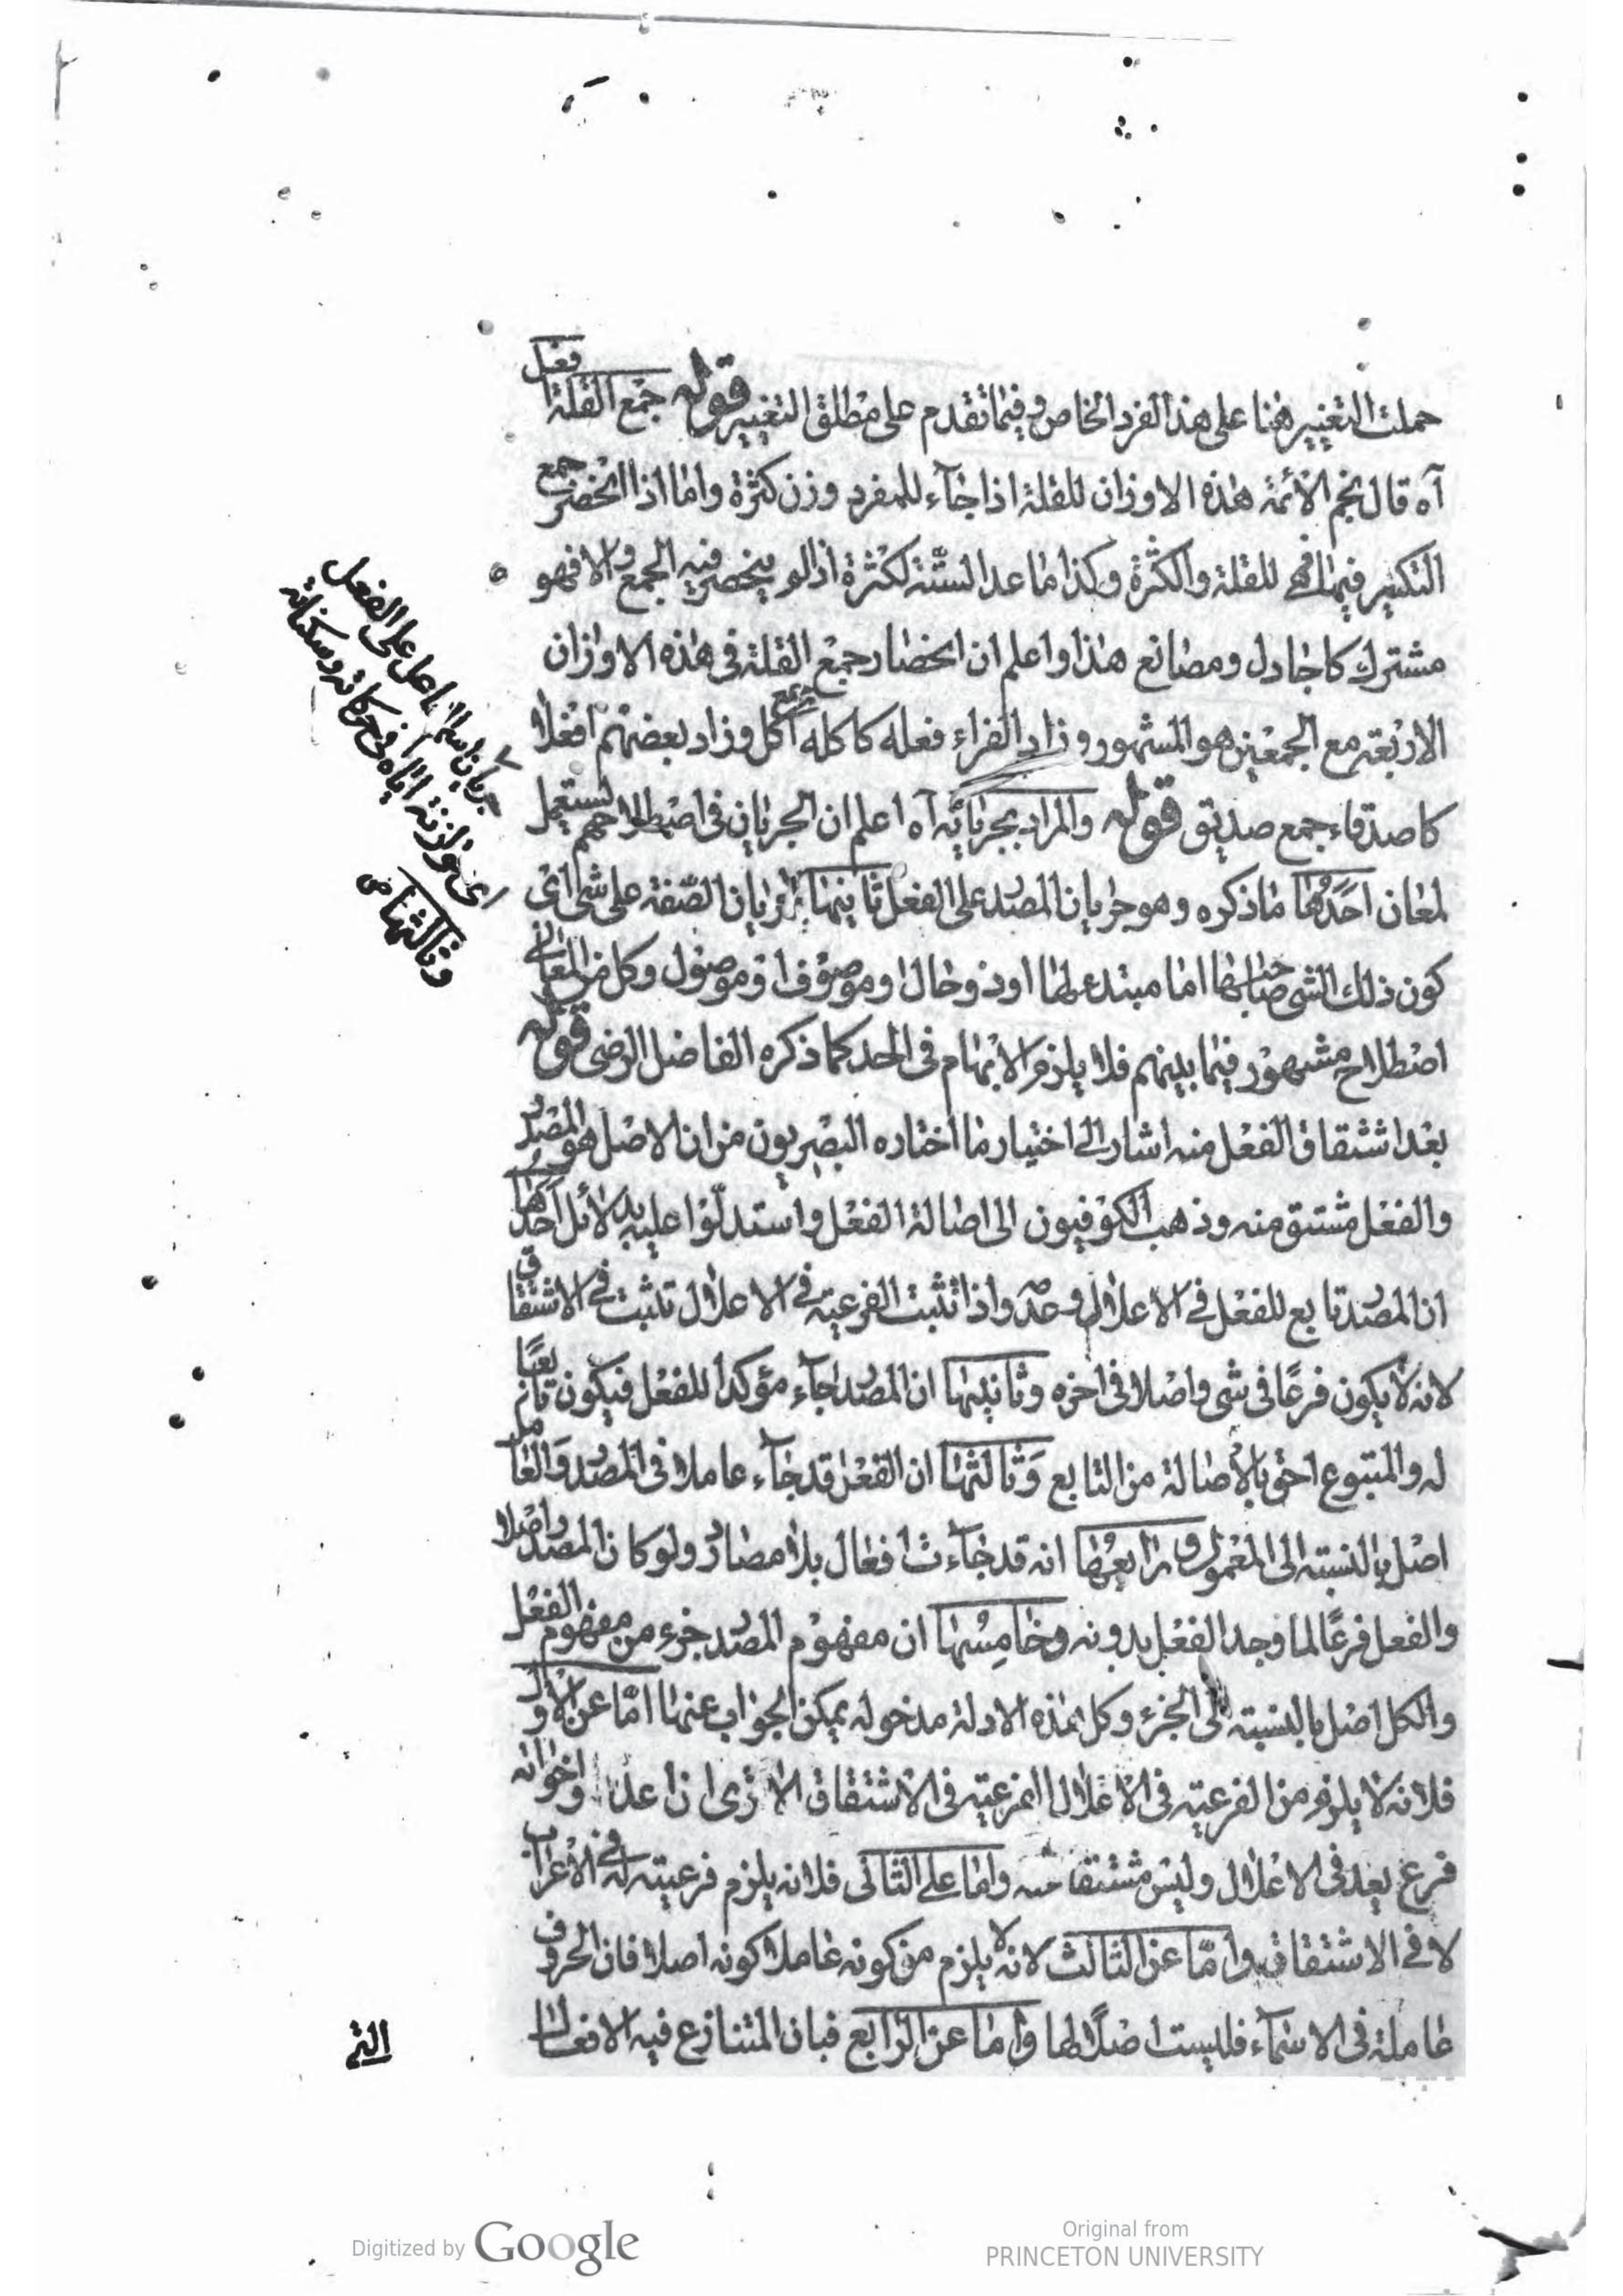 حملت التغيير هنا على هذا الفرد الخاص وفيما تقدم على مطلق التغيير قوله جمع القلة افعل
آه قال نجم الائمة هذه الاوزان للقلة اذا جاء للمفرد وزن كثرة واما اذا انحصر جمع
التكسير فيها فهي للقلة والكثرة وكذا ما عدا الستة لكثرة اذا لو ينحصر فيه الجمع والا فهو
مشترك كاجادل ومصانع هذا واعلم ان انحصار جمع القلة فى هذه الاوزان
الاربعة مع الجمعين هو المشهور وزاد الفراء فعلة كاكلة جمع اكل وزاد بعضهم افعلا
كاصدقاء جمع صديق قوله والمراد بجريانه آه اعلم ان الجريان فى اصطلاحهم يستعمل
لمعان احدها ما ذكره وهو جريان المصدر على الفعل ثانيها جريان الصفة على شى اى
كون ذلك الشى صاحبها اما مبتدء لها او ذو حال او موصوف او موصول وكل من المعانى
اصطلاح مشهور فيما بينهم فلا يلزم الابهام فى الحد كما ذكره الفاضل الرضى قوله
بعد اشتقاق الفعل منه اشار الى اختيار ما اختاره البصريون من ان الاصل هو المصدر
والفعل مشتق منه وذهب الكوفيون الى اصالة الفعل واستدلوا عليه بدلائل احدها
ان المصدر تابع للفعل فى الاعلال وعدمه واذا تثبت الفرعية فى الاعلال تثبت فى الاشتقاق
لانه لا يكون فرعًا فى شى واصلا فى اخره وثانيها ان المصدر جاء مؤكدا للفعل فيكون تابعًا
له والمتبوع احق بالاصالة من التابع وثالثها ان الفعل قد جاء عاملا فى المصدر والعامل
اصل بالنسبة الى المعمول ورابعها انه قد جاءت افعال بلا مصادر ولو كان المصدر اصلا
والفعل فرعًا لما وجد الفعل بدونه وخامسها ان مفهوم المصدر جزء من مفهوم الفعل
والكل اصل بالنسبة الى الجزء وكل هذه الادلة مدخولة يمكن الجواب عنها امّا عن الاول
فلانه لا يلزم من الفرعية فى الاعلال الفرعية فى الاشتقاق الا ترى ان اعد واخواته
فرع يعد فى الاعلال وليس مشتقا منه واما على الثانى فلانه يلزم فرعيته له فى الاعراب
لا فى الاشتقاق وامّا عن الثالث لانه لا يلزم من كونه عاملا كونه اصلا فان الحروف
عاملة فى الاسماء فليست اصلا لها واما عن الرابع فبان المتنازع فيه الافعال
التى
جريان اسم الفاعل على الفعل
اى موازنة اياه فى حركاته وسكناته
وثالثها ص
Digitized by Google
Original from
PRINCETON UNIVERSITY